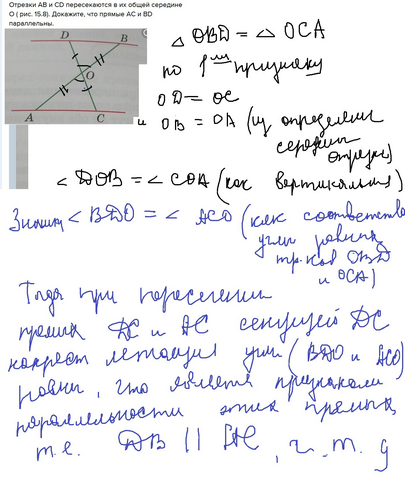 Отрезки АВ и CD пересекаются в их общей середине
О ( рис. 15.8). Докажите, что прямые АС и BD
параллельны.
D
B
O
A
C
△ OBD = △ OCA
по 1ᵐᵘ признаку
OD = OC
и OB = OA (из определения
середины
отрезка)
∠ DOB = ∠ COA (как вертикальные)
Значит ∠ BDO = ∠ ACO (как соответств
углы равных
тр-ков OBD
и OCA)
Тогда при пересечении
прямых DC и AC секущей DC
накрест лежащия углы (BDO и ACO)
равны, что является признаком
параллельности этих прямых
т.е. DB || AC , ч. т. д